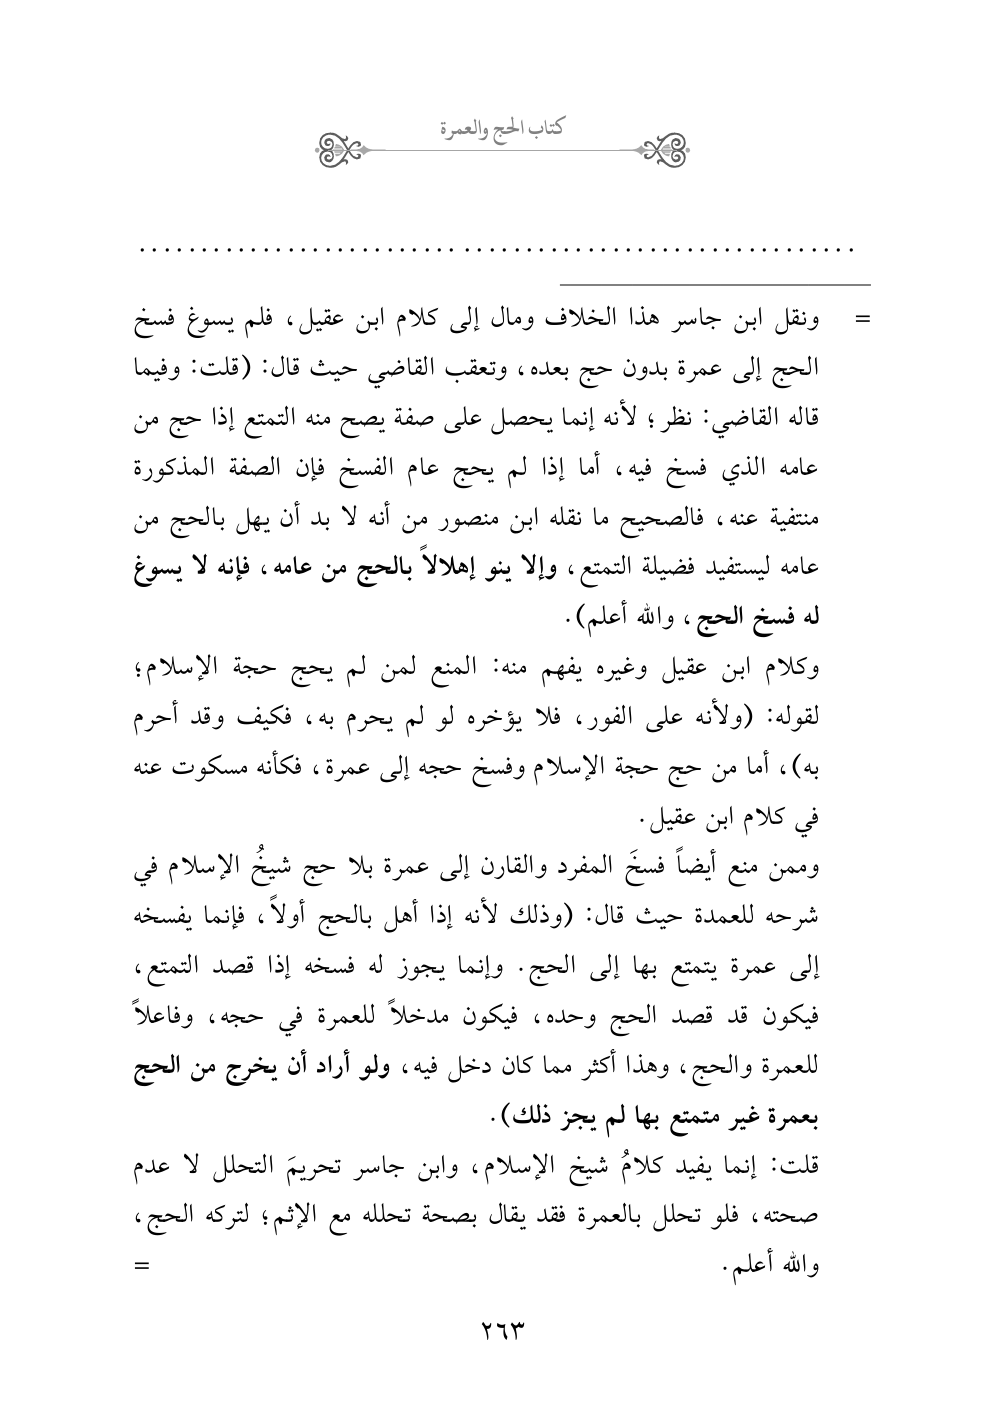 كتاب الحج والعمرة
. . . . . . . . . . . . . . . . . . . . . . . . . . . . . . . . . . . . . . . . . . . . . . . . . . . . . . . . .
= ونقل ابن جاسر هذا الخلاف ومال إلى كلام ابن عقيل، فلم يسوغ فسخ
الحج إلى عمرة بدون حج بعده، وتعقب القاضي حيث قال: (قلت: وفيما
قاله القاضي: نظر؛ لأنه إنما يحصل على صفة يصح منه التمتع إذا حج من
عامه الذي فسخ فيه، أما إذا لم يحج عام الفسخ فإن الصفة المذكورة
منتفية عنه، فالصحيح ما نقله ابن منصور من أنه لا بد أن يهل بالحج من
عامه ليستفيد فضيلة التمتع، وإلا ينو إهلالاً بالحج من عامه، فإنه لا يسوغ
له فسخ الحج، والله أعلم).
وكلام ابن عقيل وغيره يفهم منه: المنع لمن لم يحج حجة الإسلام؛
لقوله: (ولأنه على الفور، فلا يؤخره لو لم يحرم به، فكيف وقد أحرم
به)، أما من حج حجة الإسلام وفسخ حجه إلى عمرة، فكأنه مسكوت عنه
في كلام ابن عقيل.
وممن منع أيضاً فسخَ المفرد والقارن إلى عمرة بلا حج شيخُ الإسلام في
شرحه للعمدة حيث قال: (وذلك لأنه إذا أهل بالحج أولاً، فإنما يفسخه
إلى عمرة يتمتع بها إلى الحج. وإنما يجوز له فسخه إذا قصد التمتع،
فيكون قد قصد الحج وحده، فيكون مدخلاً للعمرة في حجه، وفاعلاً
للعمرة والحج، وهذا أكثر مما كان دخل فيه، ولو أراد أن يخرج من الحج
بعمرة غير متمتع بها لم يجز ذلك).
قلت: إنما يفيد كلامُ شيخ الإسلام، وابن جاسر تحريمَ التحلل لا عدم
صحته، فلو تحلل بالعمرة فقد يقال بصحة تحلله مع الإثم؛ لتركه الحج،
والله أعلم. =
٢٦٣